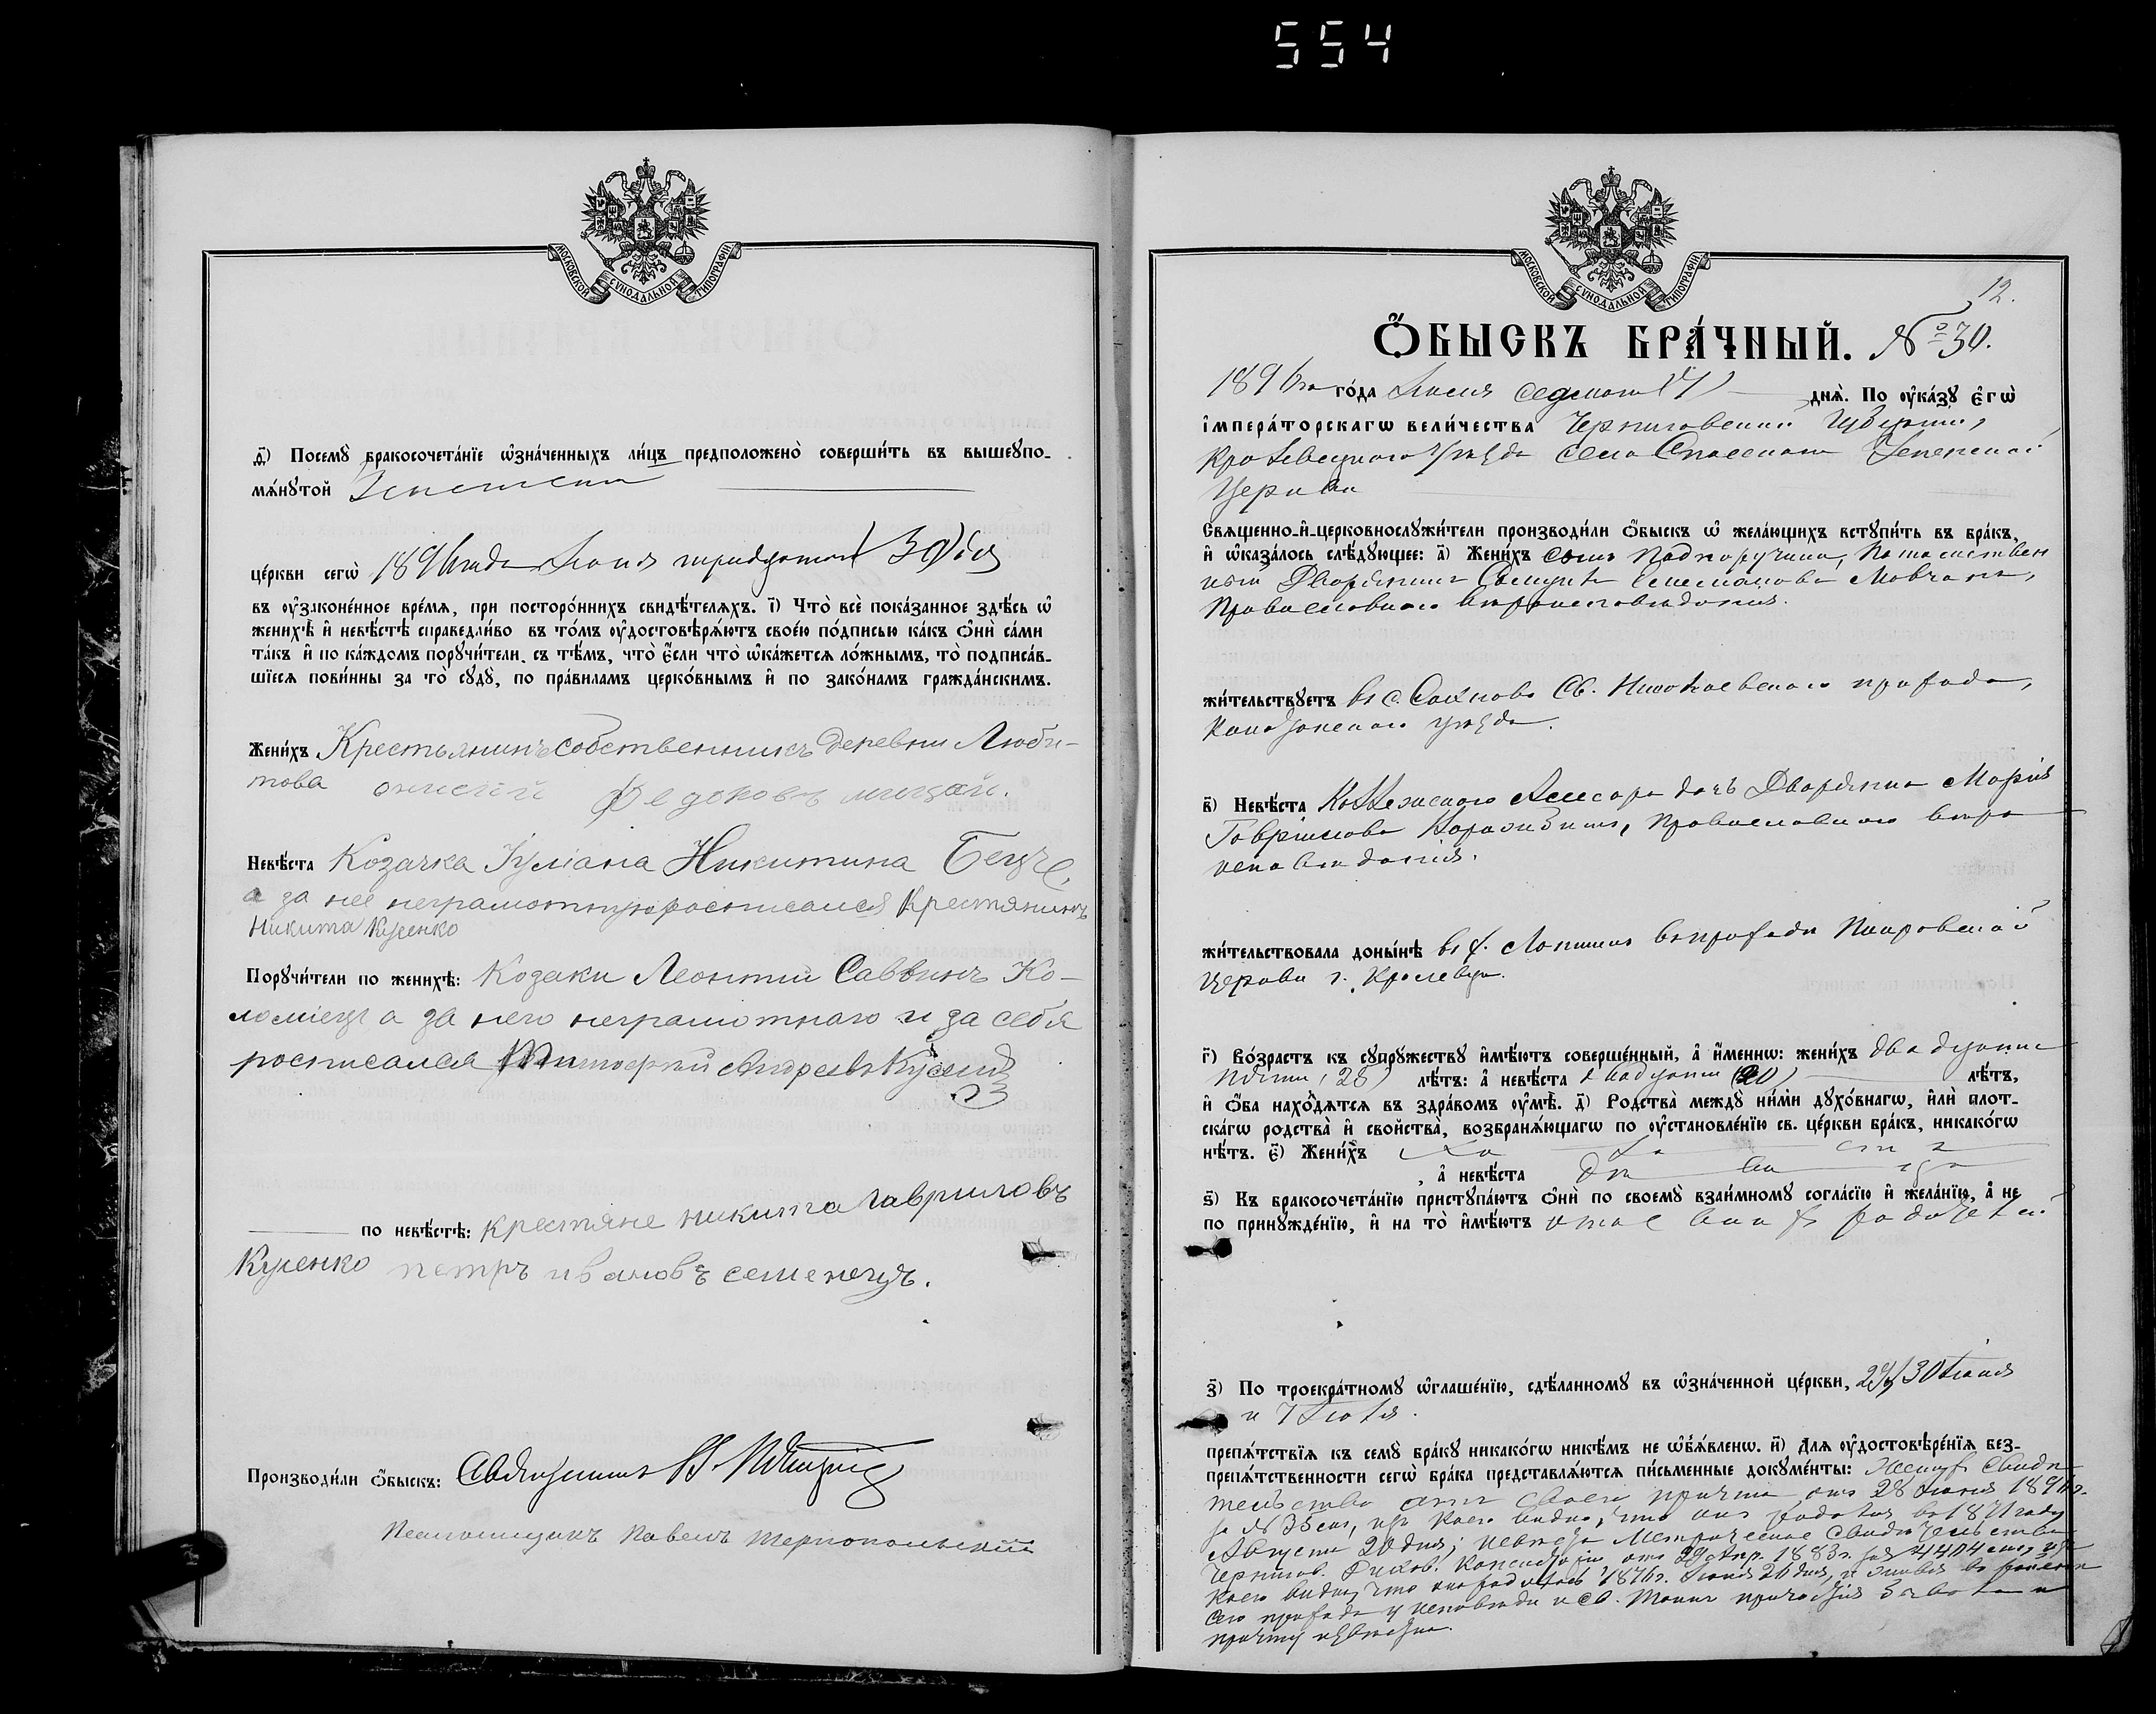 554
МОСКОВСКОЙ СѴНОДАЛЬНОЙ ТИПОГРАФІИ
д҃і) Посемꙋ̀ бракосочета́нїе ѡ҆зна́ченныхъ ли́цъ предположено̀ соверши́ть въ вышеꙋпо-
мѧ́нꙋтой Успенской
це́ркви сегѡ̀ 1896 года Іюня тридцатаго (30) дня
въ ᲂу҆зако́ненное вре́мѧ, при посторо́ннихъ свидѣ́телѧхъ. і҃) Что̀ всѐ пока́занное здѣ́сь ѡ҆
женихѣ̀ и҆ невѣ́стѣ справедли́во въ то́мъ ᲂу҆достовѣрѧ́ютъ свое́ю по́дписью ка́къ ѻ҆нѝ са́ми
та́къ и҆ по ка́ждомъ порꙋчи́тели, съ тѣ́мъ, что̀ є҆́сли что̀ ѡ҆ка́жетсѧ ло́жнымъ, то̀ подписа́в-
шїесѧ пови́нны за то̀ сꙋдꙋ̀, по пра́виламъ церко́внымъ и҆ по зако́намъ гражда́нскимъ.
Жени́хъ Крестьянинъ собственникъ деревни Люби-
това онисій Федоровъ мицай.
Невѣ́ста Козачка Іуліана Никитина
а за нее неграмотную росписался Крестянинъ
Никита Куценко
Порꙋчи́тели по женихѣ̀: Козаки Леонтій Саввинъ Ко-
ломіецъ а за него неграмотнаго и за себя
росписался Тимофей Андреевъ
по невѣ́стѣ: крестяне никита Гавриловъ
Куценко петръ ивановъ семенецъ.
Производи́ли ѻ҆́быскъ: Священникъ
Псаломщикъ Павелъ Тернопольскій
МОСКОВСКОЙ СѴНОДАЛЬНОЙ ТИПОГРАФІИ
12.
Ѻ҆́БЫСКЪ БРА́ЧНЫЙ. № 30.
1896 го го́да Іюля седьмаго (7) днѧ̀. По ᲂу҆ка́зꙋ є҆гѡ̀
і҆мпера́торскагѡ вели́чества Черниговской Губерніи,
Кролевецкаго уѣзда села Спасскаго Успенской
Церкви
Сващенно-и҆-церковнослꙋжи́тели производи́ли ѻ҆́быскъ ѡ҆ жела́ющихъ встꙋпи́ть въ бра́къ,
и҆ ѡ҆каза́лось слѣ́дꙋющее: а҃) Жени́хъ сынъ Подпоручика, Потомствен
ный Дворянинъ Мовчанъ,
Православнаго вѣроисповѣданія.
жи́тельствꙋетъ въ с. Св. Николаевскаго прихода,
Конотопскаго уѣзда.
в҃) Невѣ́ста Коллежскаго Ассесора дочь Дворянка Марія
Гавріилова, Православнаго вѣро
исповѣданія.
жи́тельствовала доны́нѣ въ х. въ приходѣ Покровской
Церкви г. Кролевца.
г҃) Во́зрастъ къ сꙋпрꙋ́жествꙋ и҆мѣ́ютъ соверше́нный, а҆ и҆́меннѡ: жени́хъ двадцати
пяти (25) лѣ́тъ: а҆ невѣ́ста двадцати (20) лѣ́тъ,
и҆ ѻ҆́ба нахо́дѧтсѧ въ здра́вомъ ᲂу҆мѣ̀. д҃) Родства̀ междꙋ ни́ми дꙋхо́внагѡ, и҆лѝ плот-
ска́гѡ родства̀ и҆ сво́йства, возбранѧ́ющагѡ по ᲂу҆становле́нїю св. це́ркви бра́къ, никако́гѡ
нѣ́тъ. є҃) Жени́хъ холостъ
, а҆ невѣ́ста дѣвица
ѕ҃) Къ бракосочета́нїю пристꙋпа́ютъ ѻ҆нѝ по своемꙋ̀ взаи́мномꙋ согла́сїю и҆ жела́нїю, а҆ не
по принꙋжде́нїю, и҆ на то̀ и҆мѣ́ютъ отъ своихъ родителей
з҃) По троекра́тномꙋ ѡ҆глаше́нїю, сдѣ́ланномꙋ въ ѡ҆зна́ченной це́ркви, 29, 30 Іюня
и 7 Іюля.
препѧ́тствїѧ къ семꙋ̀ бра́кꙋ никако́гѡ никѣ́мъ не ѡ҆б̾ѧ́вленѡ. и҃) Для ᲂу҆достовѣре́нїѧ без-
препѧ́тственности сегѡ̀ бра́ка представлѧ́ютсѧ пи́сьменные докꙋме́нты: Жениха Свидѣ
тельство отъ своего причта отъ 28 Іюня 1896 г.
за № 35 изъ коего видно, что онъ родился въ 1871 году
Августа 20 дня; невѣста Метрическое Свидѣтельство
Чернигов. Духов. Консисторіи отъ 29 Апр. 1883 г. за № 4404 изъ
коего видно, что она родилась 1876 г. Іюня 20 дня,
сего прихода у исповѣди и Св. Таинъ причастія
причту извѣстна.